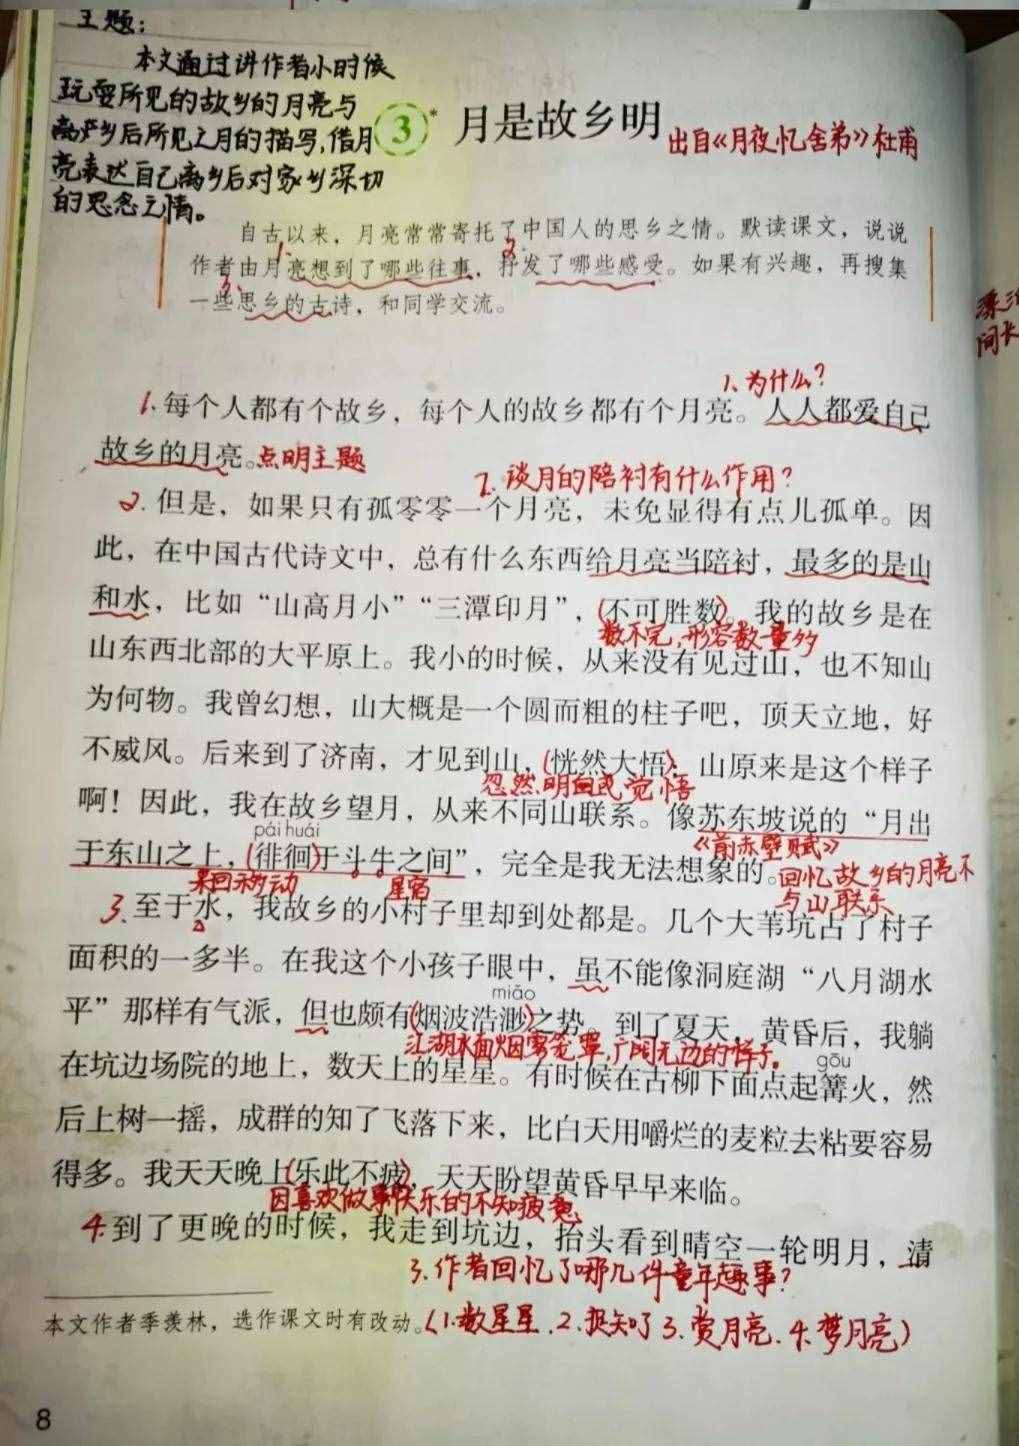 主题：
本文通过讲作者小时候
玩耍所见的故乡的月亮与
离开乡后所见之月的描写，借月
亮表达自己离乡后对家乡深切
的思念之情。
3*
月是故乡明
出自《月夜忆舍弟》杜甫
自古以来，月亮常常寄托了中国人的思乡之情。默读课文，说说
1.
2.
作者由月亮想到了哪些往事，抒发了哪些感受。如果有兴趣，再搜集
3.
一些思乡的古诗，和同学交流。
间长
1.为什么？
1.每个人都有个故乡，每个人的故乡都有个月亮。人人都爱自己
故乡的月亮。点明主题
2.谈月的陪衬有什么作用？
2.但是，如果只有孤零零一个月亮，未免显得有点儿孤单。因
此，在中国古代诗文中，总有什么东西给月亮当陪衬，最多的是山
和水，比如“山高月小”“三潭印月”，(不可胜数)。我的故乡是在
数不完，形容数量多
山东西北部的大平原上。我小的时候，从来没有见过山，也不知山
为何物。我曾幻想，山大概是一个圆而粗的柱子吧，顶天立地，好
不威风。后来到了济南，才见到山，(恍然大悟)：山原来是这个样子
忽然明白或觉悟
啊！因此，我在故乡望月，从来不同山联系。像苏东坡说的“月出
pái huái
《前赤壁赋》
于东山之上，(徘徊)于斗牛之间”，完全是我无法想象的。
来回移动
星宿
回忆故乡的月亮不
与山联系
3.至于水，我故乡的小村子里却到处都是。几个大苇坑占了村子
面积的一多半。在我这个小孩子眼中，虽不能像洞庭湖“八月湖水
miǎo
平”那样有气派，但也颇有(烟波浩渺)之势。到了夏天，黄昏后，我躺
江湖水面烟雾笼罩，广阔无边的样子。
在坑边场院的地上，数天上的星星。有时候在古柳下面点起篝火，然
gōu
后上树一摇，成群的知了飞落下来，比白天用嚼烂的麦粒去粘要容易
得多。我天天晚上(乐此不疲)，天天盼望黄昏早早来临。
因喜欢做事快乐的不知疲惫
4.到了更晚的时候，我走到坑边，抬头看到晴空一轮明月，清
3.作者回忆了哪几件童年趣事？
本文作者季羡林，选作课文时有改动。
(1.数星星.2.捉知了3.赏月亮.4.梦月亮)
8